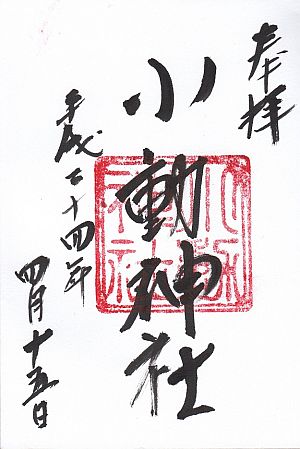 奉拝
小動神社
平成二十四年
四月十五日